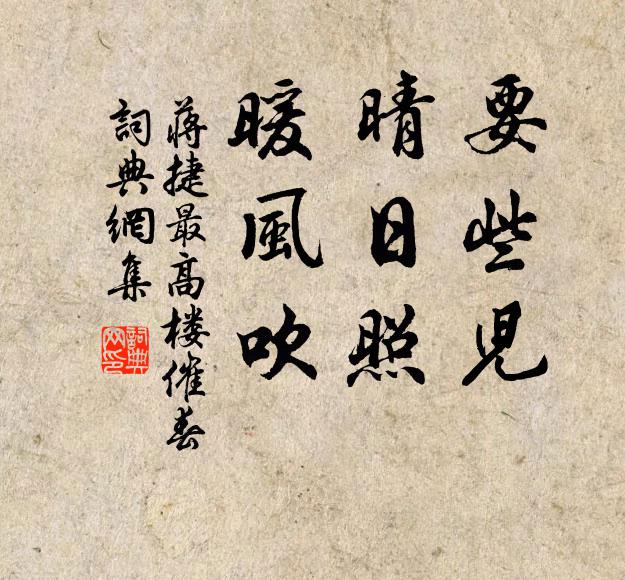 要些児
晴日照
暖風吹
蔣捷最高楼催春
詞典網集
詞典网印